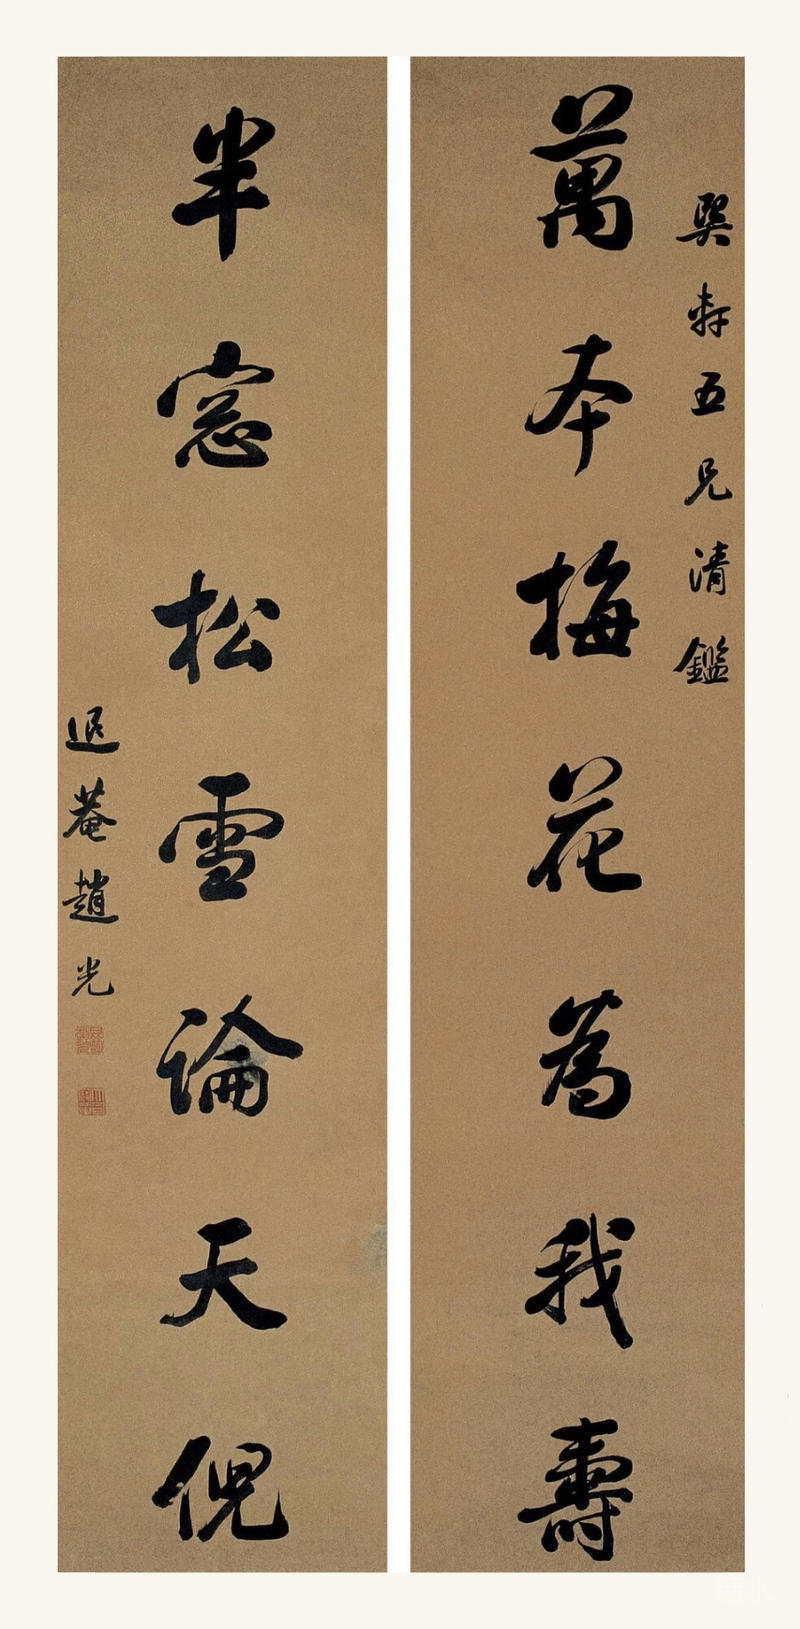 萬本梅花為我壽
五兄清鑑
半窓松雪論天倪
退菴趙光